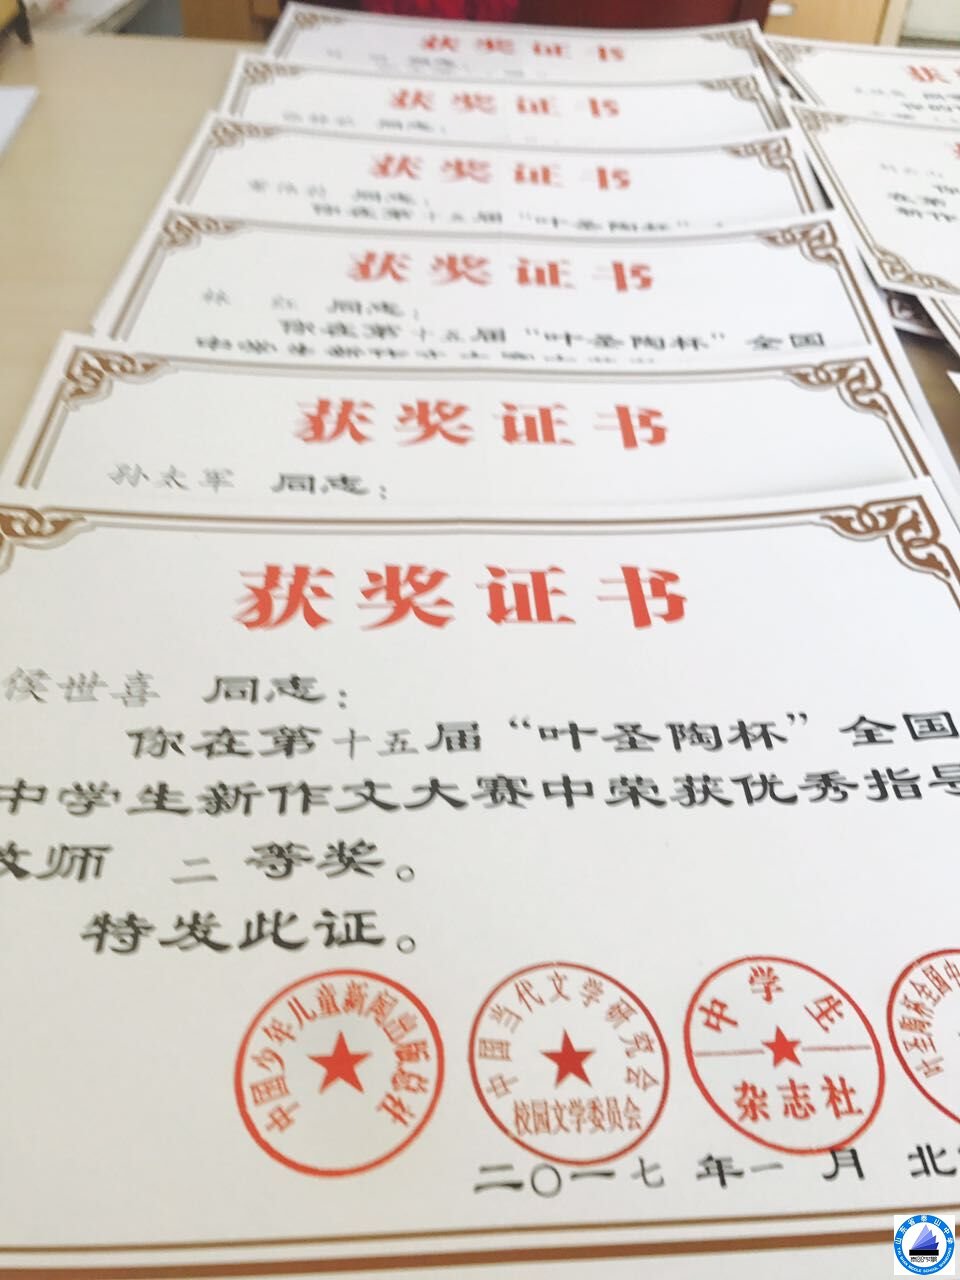 获奖证书
同志：
获奖证书
同志：
获奖证书
同志：
你在第十五届“叶圣陶杯”
获奖证书
林 红 同志：
你在第十五届“叶圣陶杯”全国
中学生新作文大赛
获奖证书
孙太军 同志：
获奖证书
侯世喜 同志：
你在第十五届“叶圣陶杯”全国
中学生新作文大赛中荣获优秀指导
教师 二 等奖。
特发此证。
中国少年儿童新闻出版总社
中国当代文学研究会
校园文学委员会
中学生
杂志社
叶圣陶杯全国中
二〇一七 年一 月 北
获
你的
获
你
在第
新作
山东省泰山中学